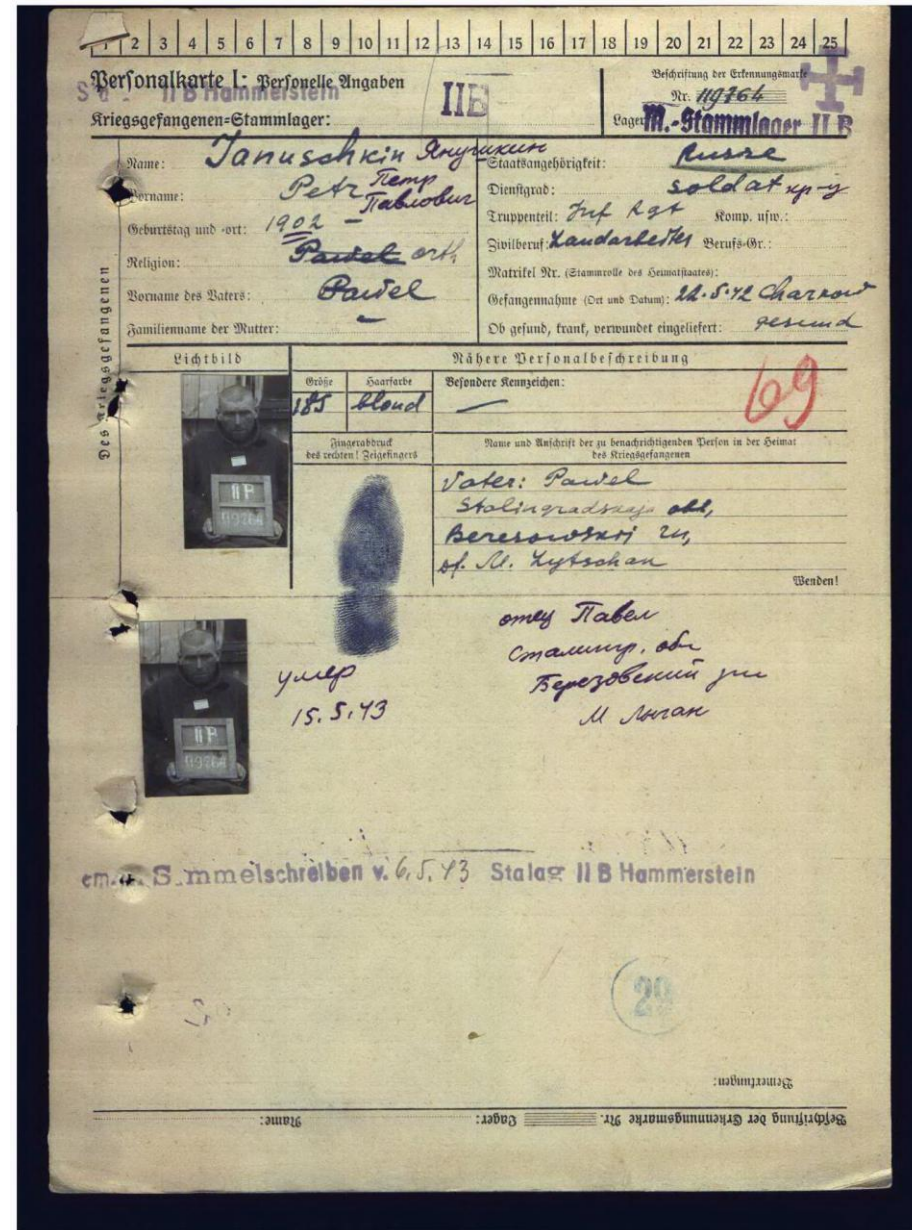 1 2 3 4 5 6 7 8 9 10 11 12 13 14 15 16 17 18 19 20 21 22 23 24 25
Personalkarte I: Personelle Angaben
II B Hammerstein
Kriegsgefangenen=Stammlager:
IIB
Beschriftung der Erkennungsmarke
Nr. 119764
Lager M.-Stammlager II B
Des Kriegsgefangenen
Name: Januschkin Янушкин
Vorname: Petr Петр Павлович
Geburtstag und -ort: 1902 –
Religion: Pawel orth.
Vorname des Vaters: Pawel
Familienname der Mutter: –
Staatsangehörigkeit: Russe
Dienstgrad: soldat кр-ц
Truppenteil: Inf Rgt Komp. usw.:
Zivilberuf: Landarbeiter Berufs-Gr.:
Matrikel Nr. (Stammrolle des Heimatstaates):
Gefangennahme (Ort und Datum): 22.5.42 Charkow
Ob gesund, krank, verwundet eingeliefert: gesund
Lichtbild
Nähere Personalbeschreibung
Größe Haarfarbe Besondere Kennzeichen:
185 blond –
69
Fingerabdruck
des rechten! Zeigefingers
Name und Anschrift der zu benachrichtigenden Person in der Heimat
des Kriegsgefangenen
Vater: Pawel
Stalingradskaja obl,
Beresowskij
M. Lytschan
Wenden!
II B
119764
отец Павел
Сталингр. обл
Березовский
М Лычан
умер
15.5.43
II B
119764
Sammelschreiben v. 6.5.43 Stalag II B Hammerstein
29
Bemerkungen:
Beschriftung der Erkennungsmarke Nr. Lager: Name: